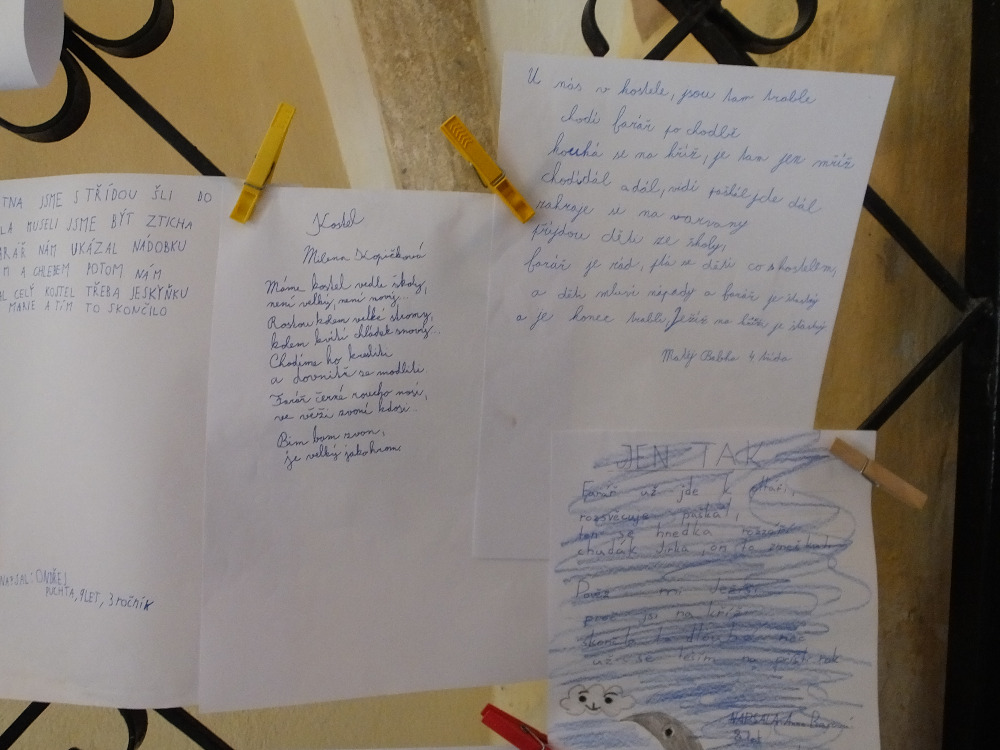 TNA JSME S TŘÍDOU ŠLI DO
LA MUSELI JSME BÝT ZTICHA
ARÁŘ NÁM UKÁZAL NÁDOBKU
M A CHLEBEM POTOM NÁM
AL CELÝ KOSTEL TŘEBA JESKYŇKU
MARIE A TÍM TO SKONČILO
NAPSAL: ONDŘEJ
PUCHTA, 9 LET, 3 ročník
Kostel
Milena Kopičková
Máme kostel vedle školy,
není velký, není nový...
Rostou kolem velké stromy,
kolem kvítí chládek snový...
Chodíme ho kreslit
a dovnitř se modlit.
Farář černé roucho nosí,
ve věži zvoní kdosi...
Bim bam zvon,
je velký jako hrom.
U nás v kostele, jsou tam trable
chodí farář po chodbě
kouká se na kříž, je tam jen mříž
chodí dál a dál, vidí paškál jde dál
zahraje si na varhany
přijdou děti ze školy,
farář je rád, ptá se dětí co s kostelem,
a děti mluví nápady a farář je šťastný
a je konec trablí, Ježíš na kříži je šťastný
Matěj 4 třída
JEN TAK
Farář už jde k oltáři,
rozsvěcuje paškál,
ten se hnedka rozzáří
chudák Jirka, on to zmeškal.
Pověz mi Ježíši
proč jsi na kříži
skončila ta dlouhá noc
už se těším na příští rok
NAPSALA Anna
8 let